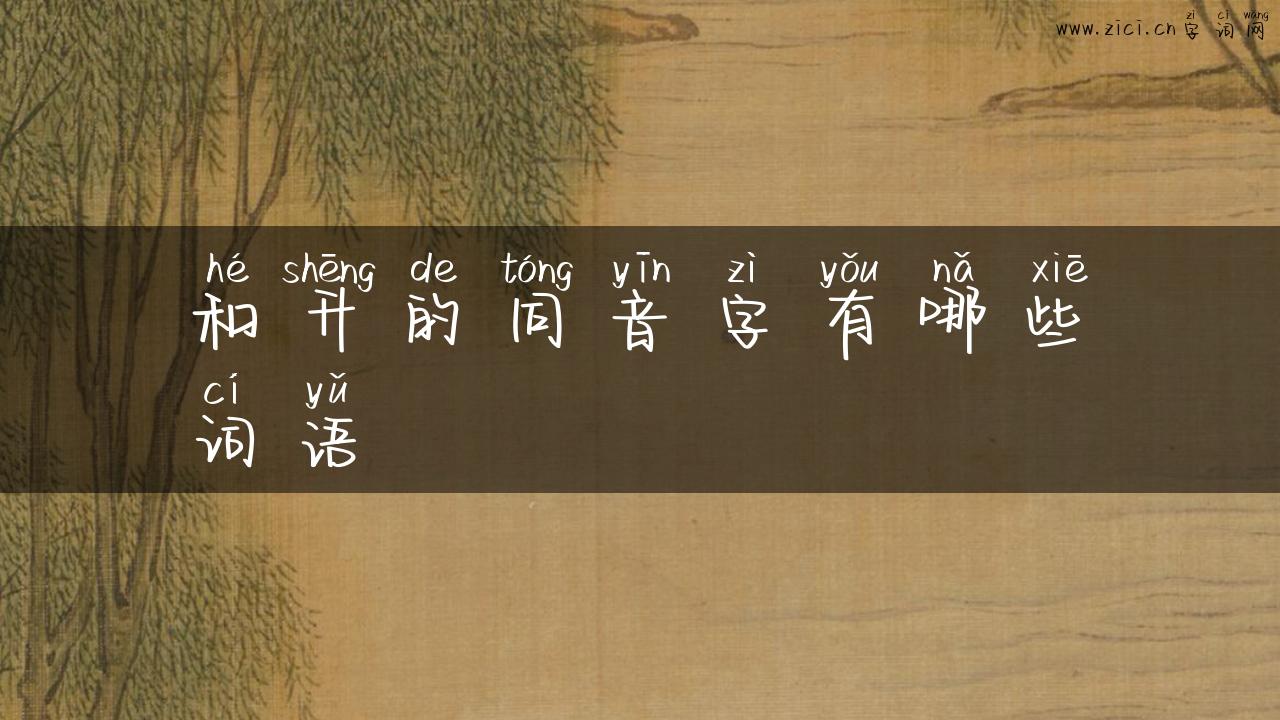 zì cí wǎng
www.zici.cn 字词网
hé shēng de tóng yīn zì yǒu nǎ xiē
和升的同音字有哪些
cí yǔ
词语